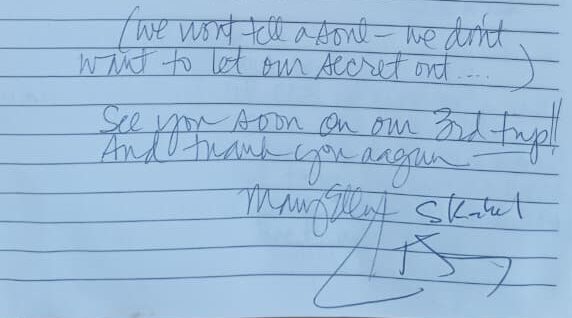 (we won't tell a soul - we don't
want to let our secret out....)
See you soon on our 3rd trip!!
And thank you again. —